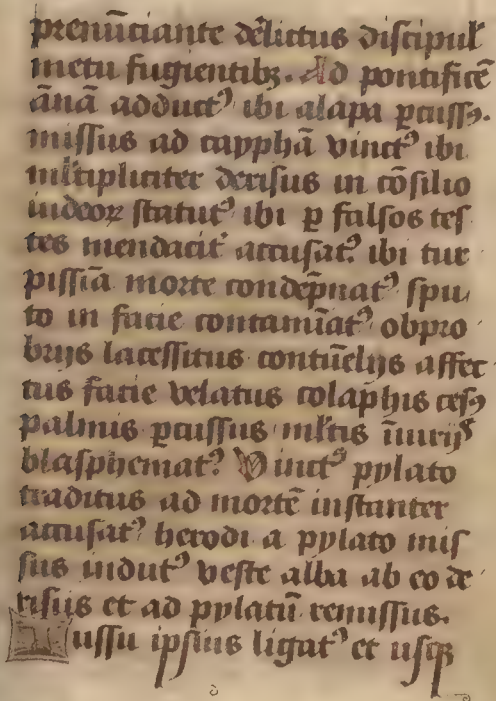 prenūciante delictus discipul̕
metu fugientibꝫ. Ad pontificē
ānā adductꝰ ibi alapa ꝑcussꝰ.
missus ad cayphā vinctꝰ ibi
ml̕tipliciter derisus in cōsilio
iudeoꝝ statutꝰ ibi ꝑ falsos tes
tes mendacit̕ accusatꝰ. ibi tur
pissīa morte condēpnatꝰ spu
to in facie contamīatꝰ obpro
brijs lacessitus contūelijs affec
tus facie velatus colaphis cesꝰ
palmis ꝑcussus ml̕tis īiurijs
blasphematꝰ. Vinctꝰ pylato
traditus ad mortē instanter
accusatꝰ herodi a pylato mis
sus indutꝰ veste alba ab eo de
risus et ad pylatū remissus.
Iussu ipsius ligatꝰ et usqꝫ